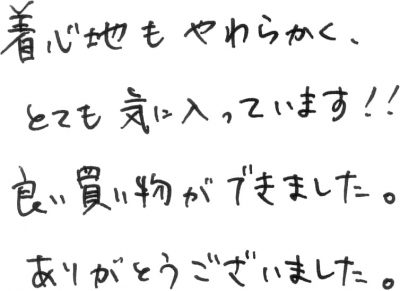 着心地もやわらかく、
とても気に入っています!!
良い買い物ができました。
ありがとうございました。